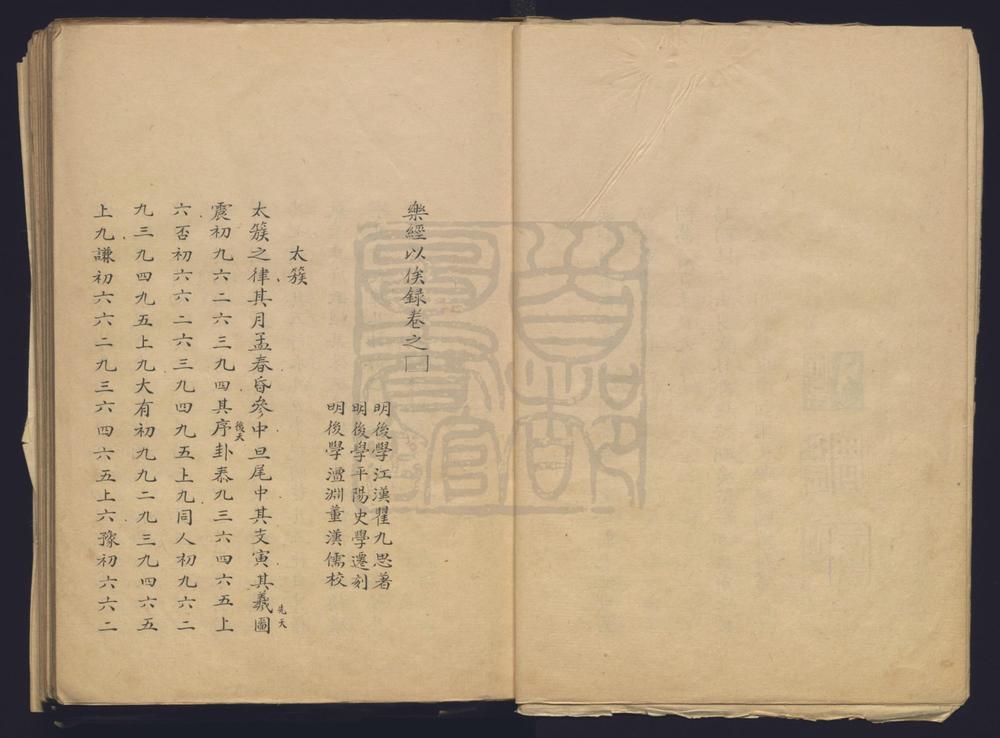 樂經以俟録卷之一
明後學江漢瞿九思著
明後學平陽史學遷刻
明後學澶淵董漢儒校
太簇
太簇之律其月孟春昏參中旦尾中其支寅其羲圖先天
震初九六二六三九四其序卦後天泰九三六四六五上
六否初六六二六三九四九五上九同人初九六二
九三九四九五上九大有初九九二九三九四六五
上九謙初六六二九三六四六五上六豫初六六二